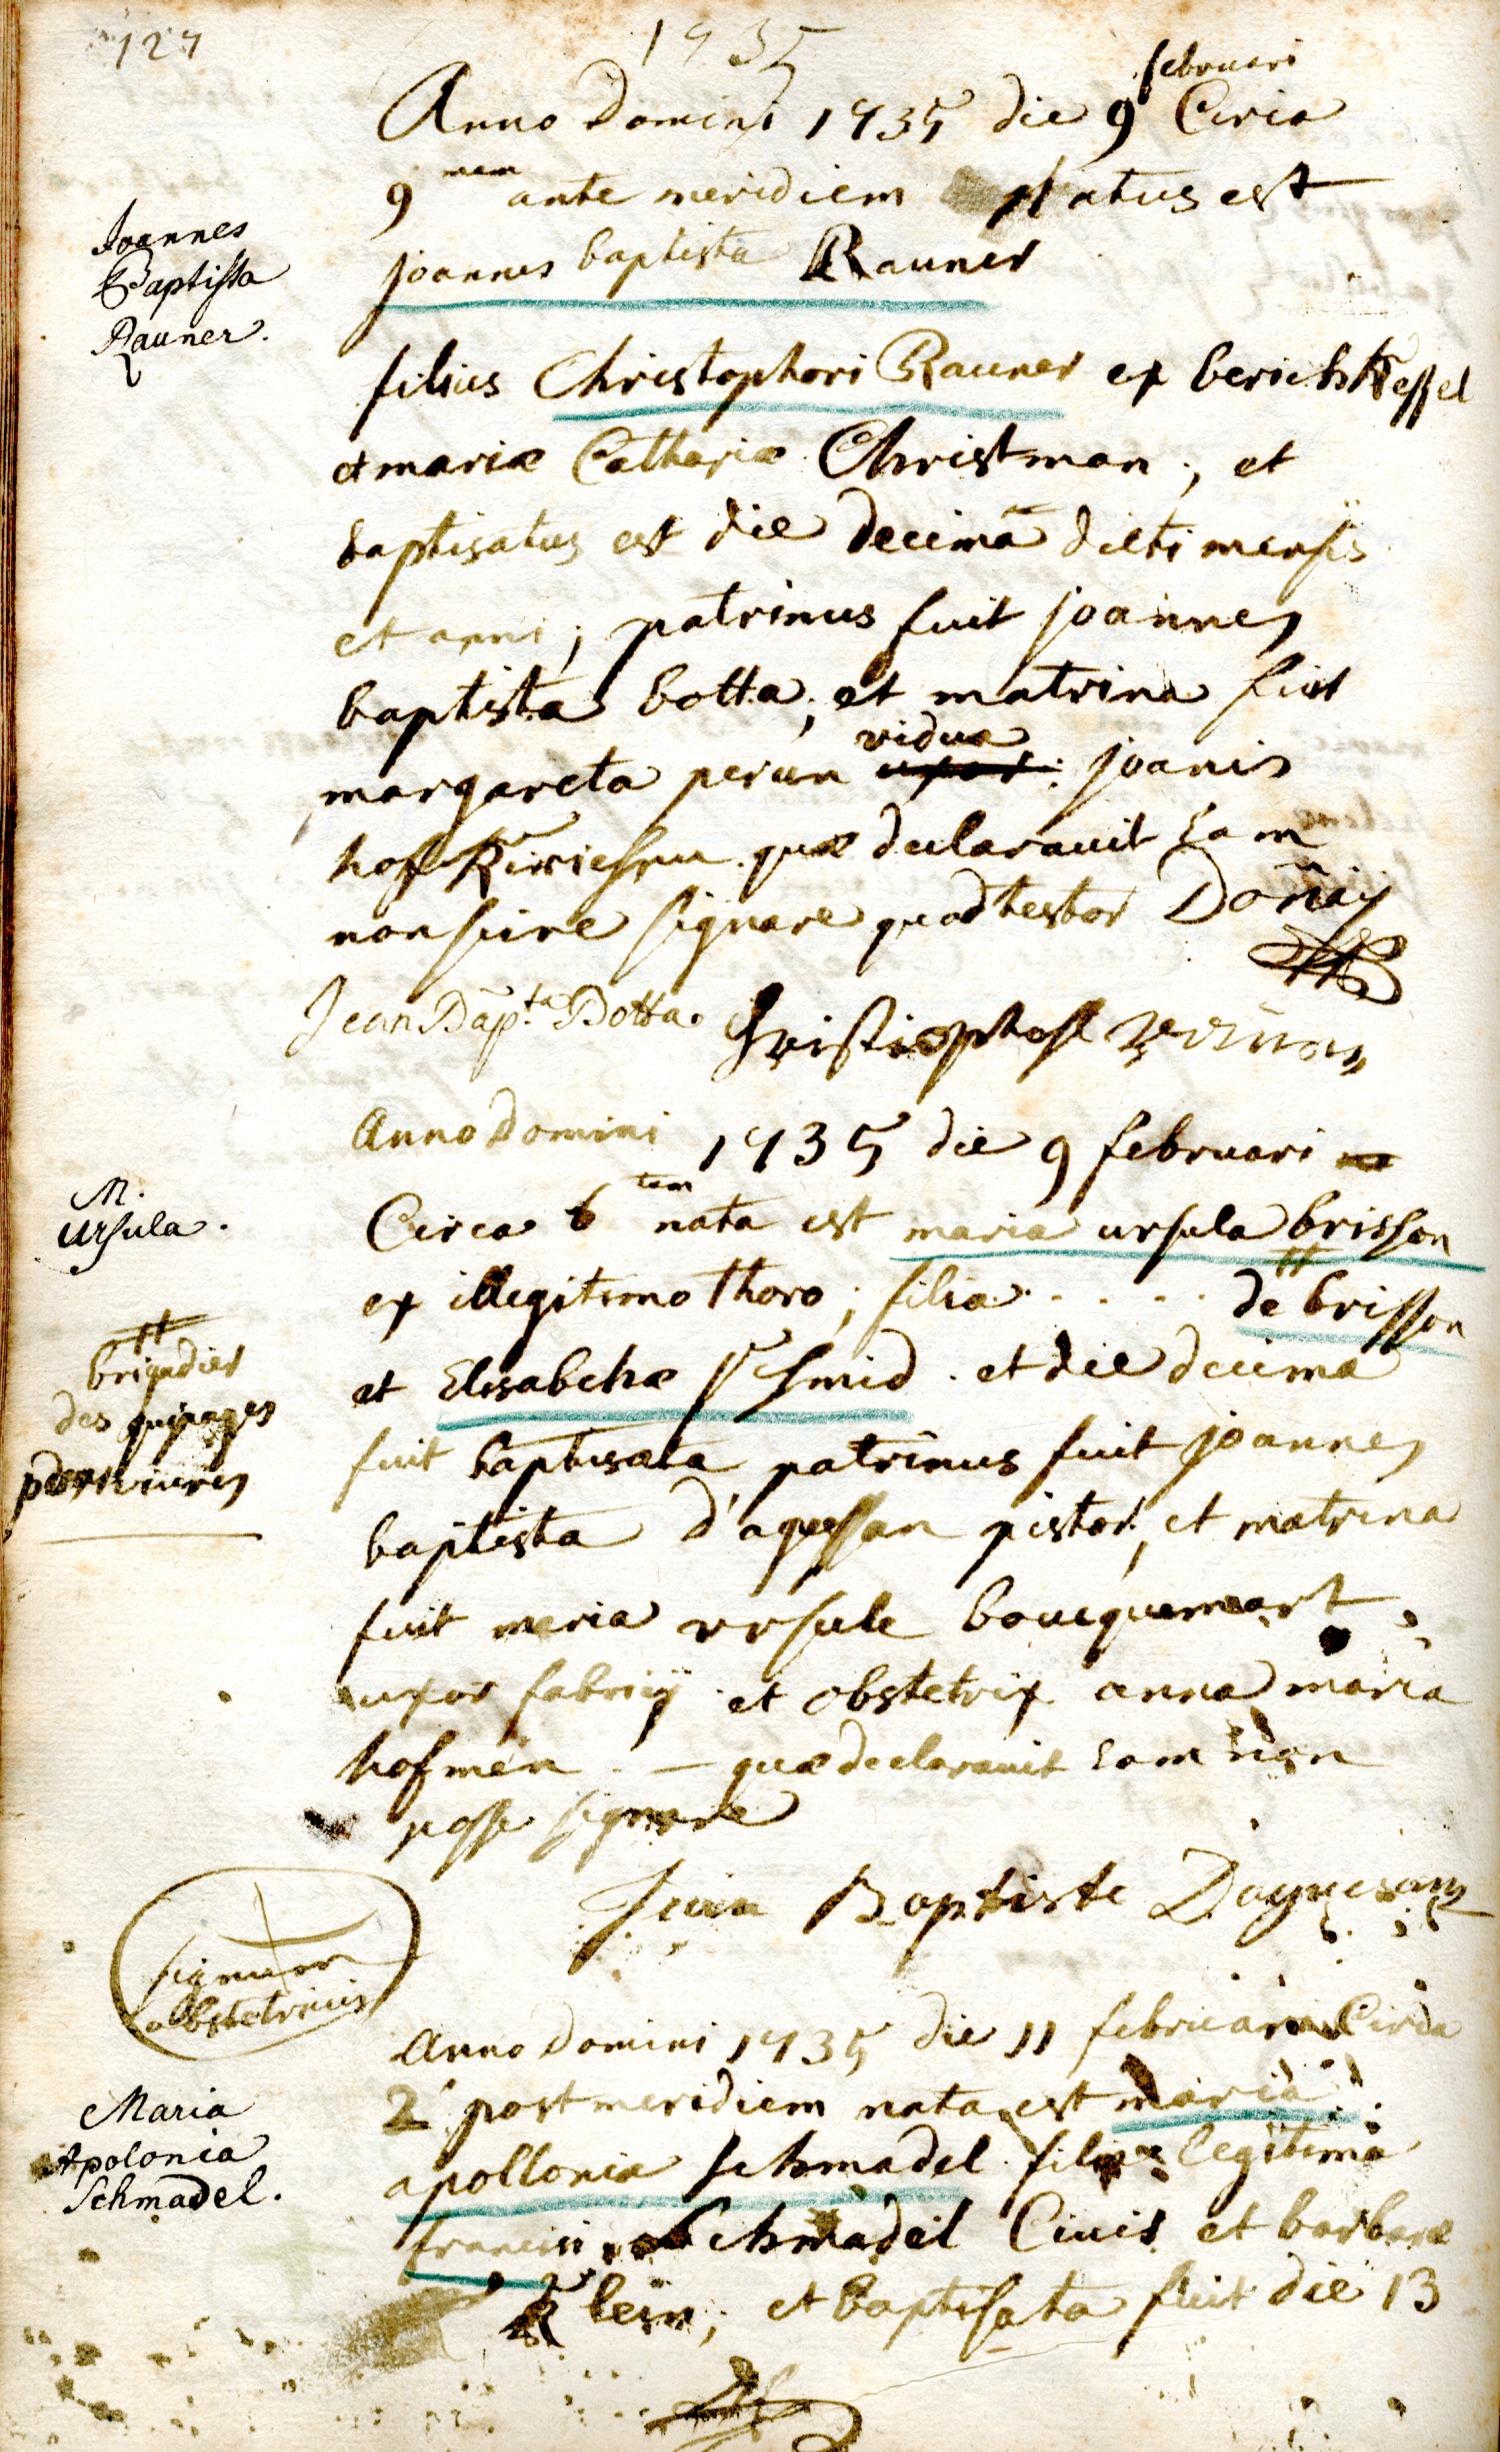 127
1735
februari
Anno Domini 1735 die 9 Circa
9 nam ante meridiem Natus est
joannes baptista Rauner
Joannes
Baptista
Rauner.
filius Christophori Rauner ex
et mariæ Cathariæ Christman, et
baptisatus est die decimã dicti mensis
et anni; patrinus fuit joannes
baptista botta; et matrina fuit
vidua
margareta perun uxor: joanis
hof quæ declarauit Eam
non scire signare quod testor Doñay
Jean Bap.ta Botta.
Anno Domini 1735 die 9 februari
M.
Ursula.
Circa 6 tam nata est maria ursula brisson
ex illegitimo thoro; filia . . . . de brisson
brigadier
des quipages
et Elisabethæ schmid . et die decima
fuit baptisata patrinus fuit joannes
baptista d'aguessan pistor, et matrina
fuit maria ursule
uxor fabrij et obstetrix anna maria
hofmen . — quæ declarauit Eam non
posse signare
Jean Baptiste
signum
obstetricis
Anno Domini 1735 die 11 februari Circa
2 post meridiem nata est maria
Maria
Apolonia
Schmadel.
apollonia schmadel filia legitima
francisi Schmadel Ciuis et barbaræ
Klein; et baptisata fuit die 13